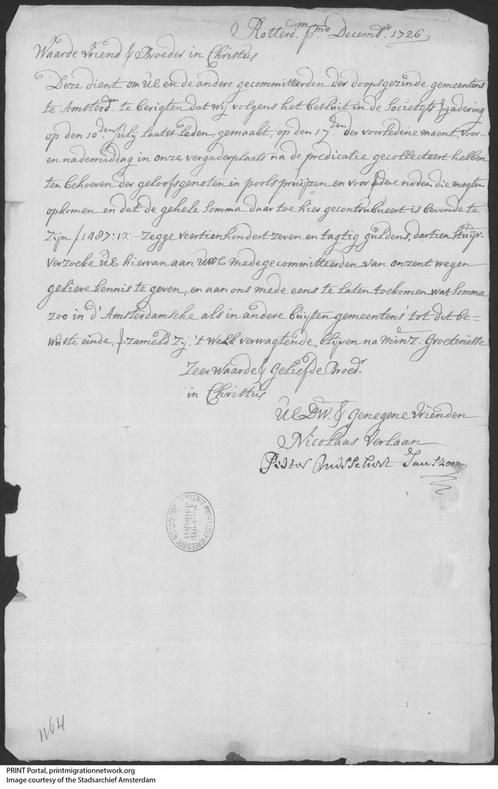 Rotterd.m p.mo Decemb. 1726
Waarde Vriend & Broeder in Christus
Deze dient om UE en de andere gecommitteerden der doopsgezinde gemeentens
te Amsterd.m te berigten dat wij volgens het besluit in de Societyts gadering
op den 10.den July laatst leden, gemaakt, op den 17.den der voorledene maent, voor
en nademiddag in onze vergaderplaats na de predicatie gecollecteert hebben
ten behoeven der geloofsgenoten in pools pruijzen en voor noden die mogten
opkomen en dat de gehele Somma daar toe hier gecontribueert is bevonde te
Zijn ƒ1487:13:- Zegge veertienhondert zeven en tagtig guldens, dartien stuijv.
verzoeke UE hiervan aan UWE medegecommitteerden van onzent wegen
gelieve kennis te geven, en aan ons mede eens te laten toekomen wat Somma
zoo in d'Amsterdamsche als in andere buijten gemeentens tot dit be-
wuste einde, zameld zij, 't welk verwagtende, blijven na minz. Groetenisse
Zeer waarde & Geliefde Broed.
in Christus
UE DW. & Genegene Vrienden
Nicolaas Verlaan
Pieter Janszoon
1164
PRINT Portal, printmigrationnetwork.org
Image courtesy of the Stadsarchief Amsterdam